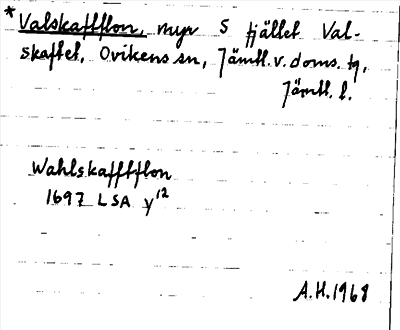 *Valskaftflon, myr S fjället Val-
skaftet, Ovikens sn, Jämtl. v. doms. tg,
Jämtl. l.
Wahlskafftflon
1697 LSA y12
A.H. 1968